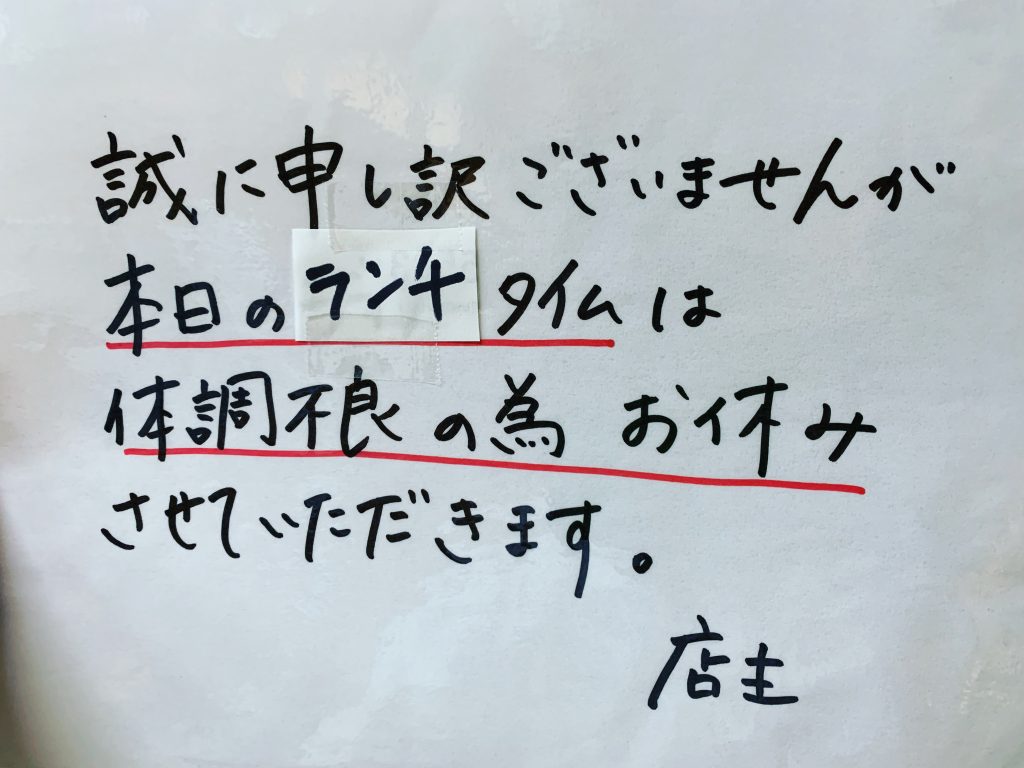 誠に申し訳ございませんが
本日のランチタイムは
体調不良の為 お休み
させていただきます。
店主